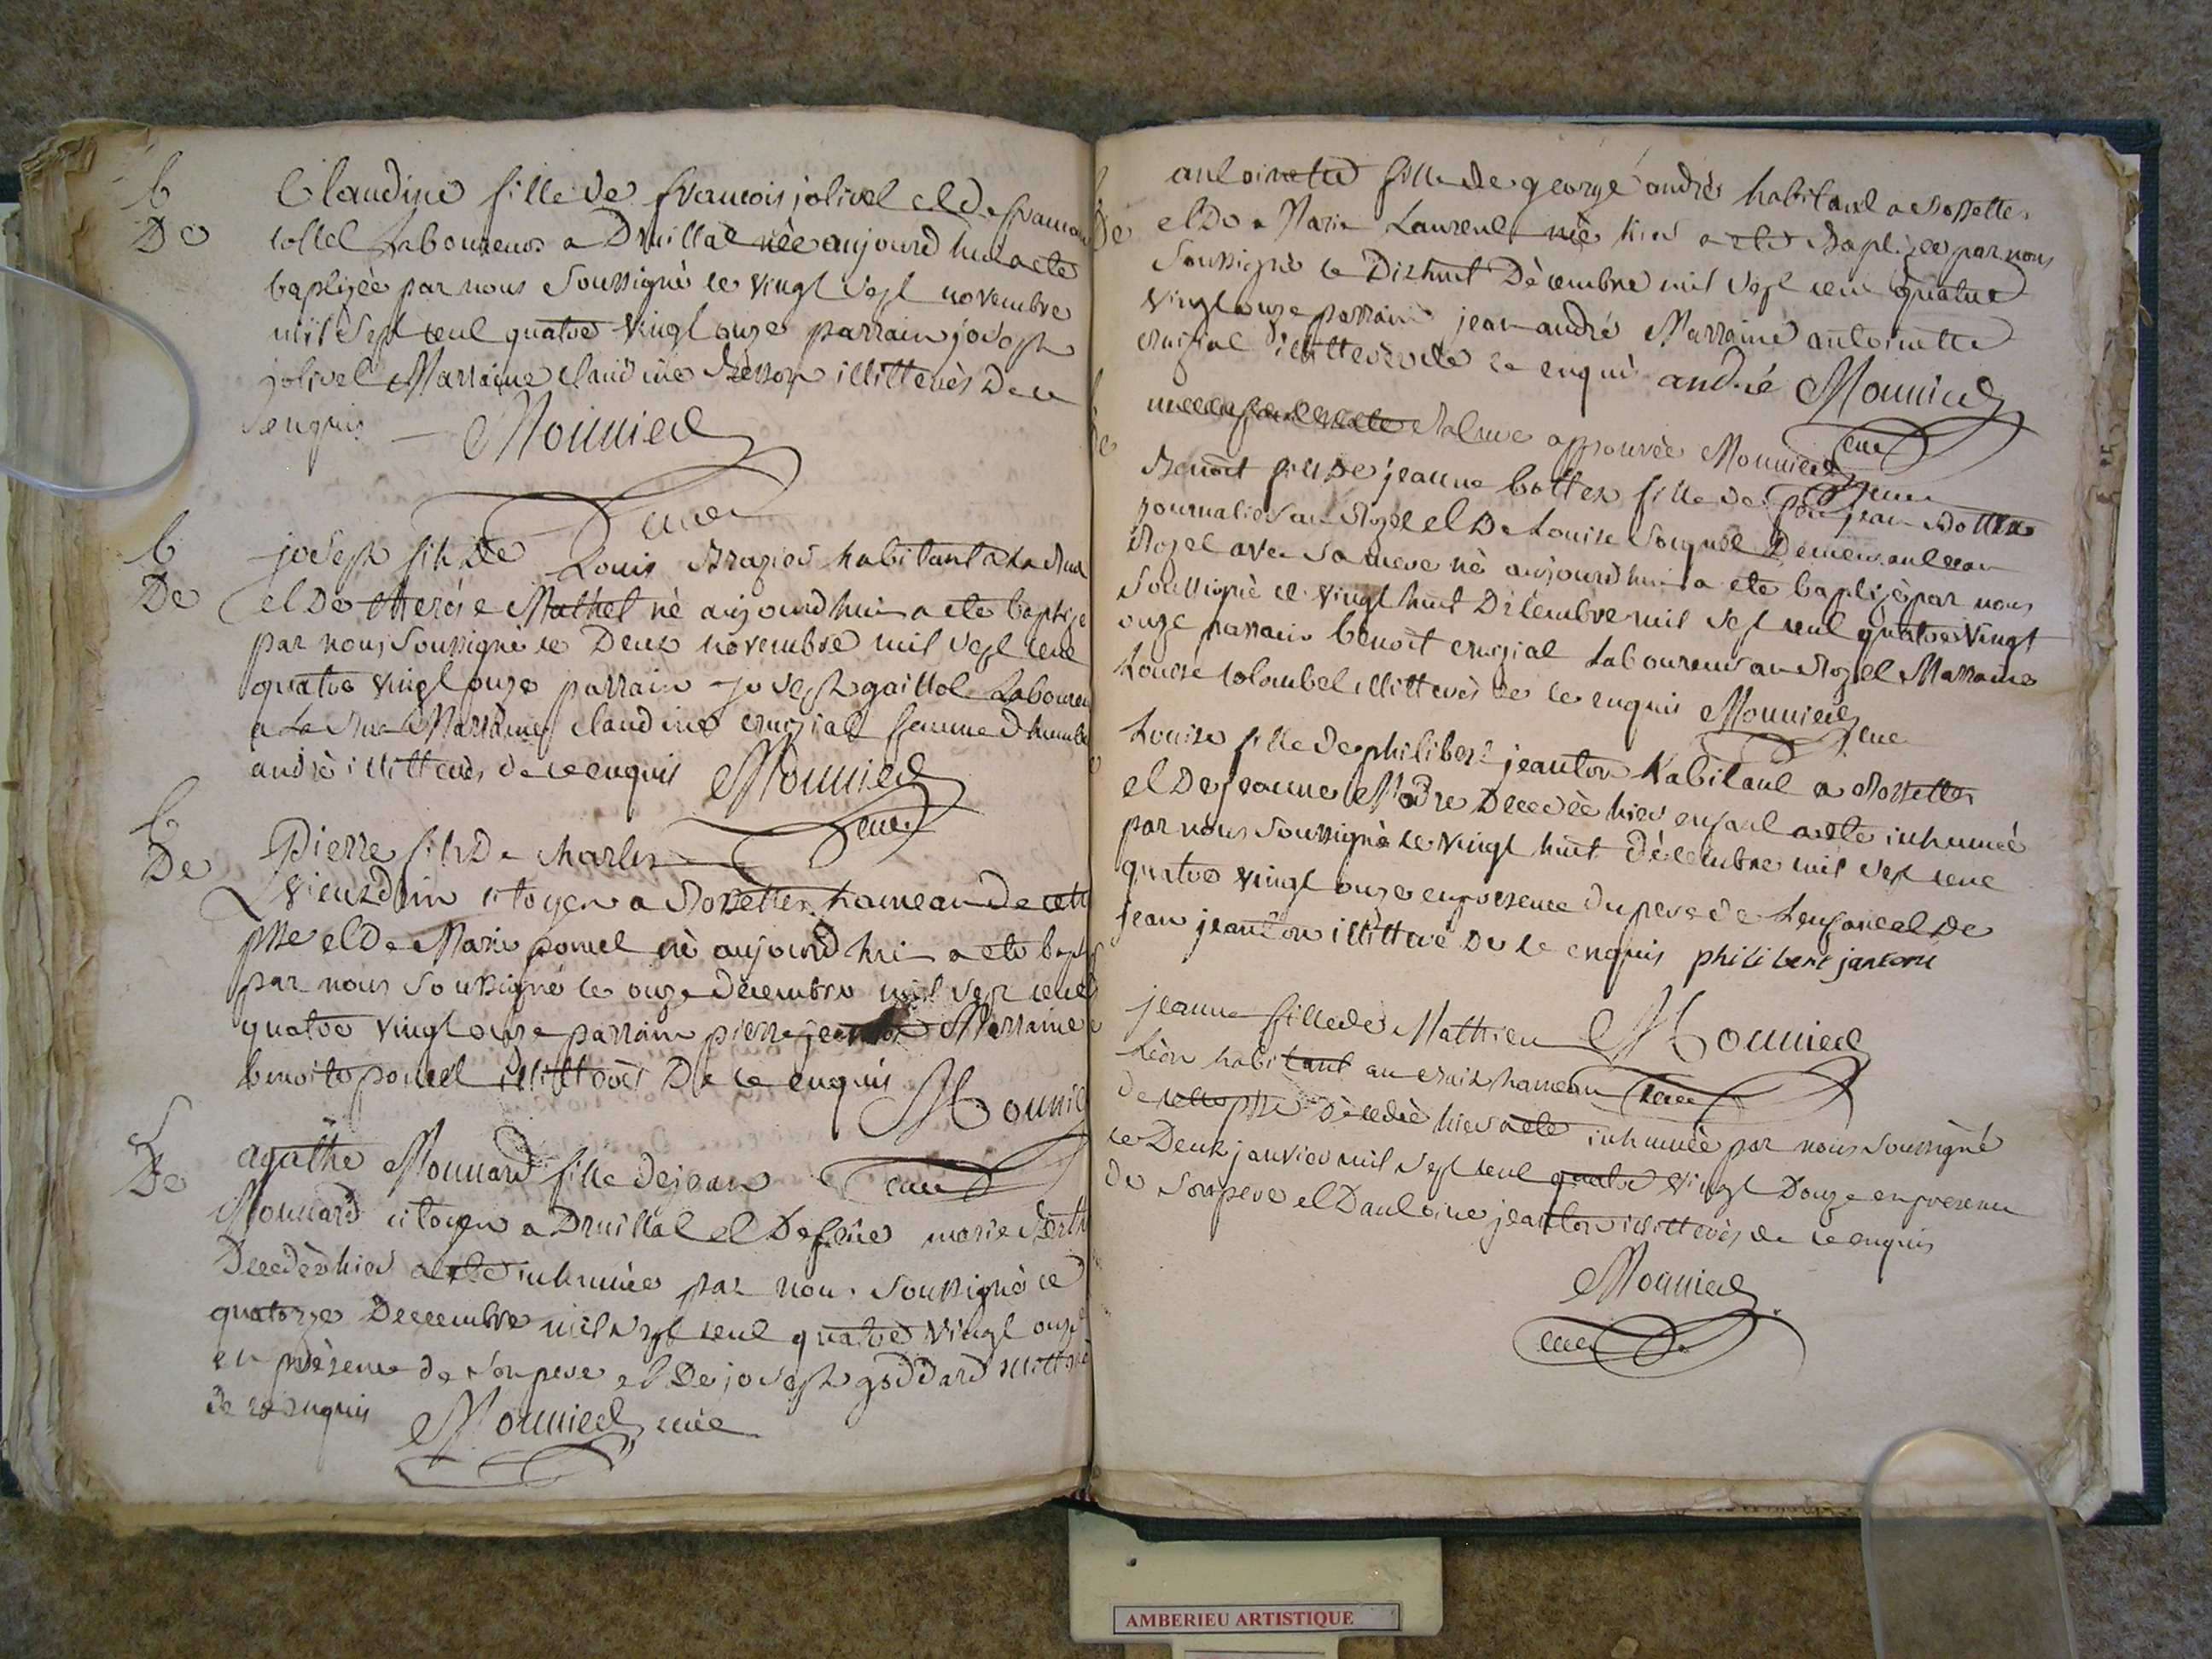 b Claudine fille de francois jolivet et de
De collet laboureur a Druillat née aujourdhui a ete
baptizée par nous soussigné le vingt sept novembre
mil sept cent quatre vingt onze parrain joseph
jolivet Marraine claudine illitterès De ce
enquis Mounier
curé
b joseph fils De Louis Brazier habitant a la Rua
De et De therése Mathel né aujourdhui a ete baptizé
par nous soussigné le Deux novembre mil sept cent
quatre vingt onze parrain joseph gaillot Laboureur
a la Rua Marraine claudine cruzial femme d
andré illitterés de ce enquis Mounier
curé
b Pierre fils De charles
De vieux citoyen a Rossettes hameau de cette
psse et De Marie poncet né aujourd hui a ete
par nous soussigné le onze decembre mil sept cent
quatre vingt onze parrain pierre Marraine
benoite poncet illitterès De ce enquis Mounier
S agathe Monnard fille de jean curé
De Monnard citoyen a Druillat et De marie
Decedée hier a ete inhumée par nous soussigné ce
quatorze Decembre mil sept cent quatre vingt onze
en présence de son pere et De joseph goddard
de ce enquis Mounier curé
antoinette fille de george andré habitant a Rossettes
De et De Marie Laurent née hier a ete Baptizée par nous
soussigné le Dix huit Décembre mil sept cent quatre
vingt onze parrain jean andré Marraine antoinette
cruzial illitterée de ce enquis andré Mounier
curé
Ralure approuvée Mounier
curé
De Benoit fils De jeanne bottex fille de feu jean Bottex
journalier au Rozel et De Louise Demeurant au
Rozel avec sa mere né aujourdhui a ete baptizé par nous
soussigné le vingt huit Décembre mil sept cent quatre vingt
onze parrain benoit cruzial Laboureur au Rozel Marraine
Louise Colombet illitterés de ce enquis Mounier
curé
Louise fille de philibert jeanton habitant a Rossettes
et De jeanne Decedée hier enfant a ete inhumée
par nous soussigné le vingt huit décembre mil sept cent
quatre vingt onze en presence du pere de Lenfant et De
jean jeanton illitteré De ce enquis philibert jantom
jeanne fille de Mathieu Mounier
Léon habitant au hameau curé
de cette psse Decedée hier a ete inhumée par nous soussigné
le Deux janvier mil sept cent quatre vingt Douze en presence
de son pere et Dantoine jeanton illitterés de ce enquis
Mounier
curé
AMBERIEU ARTISTIQUE